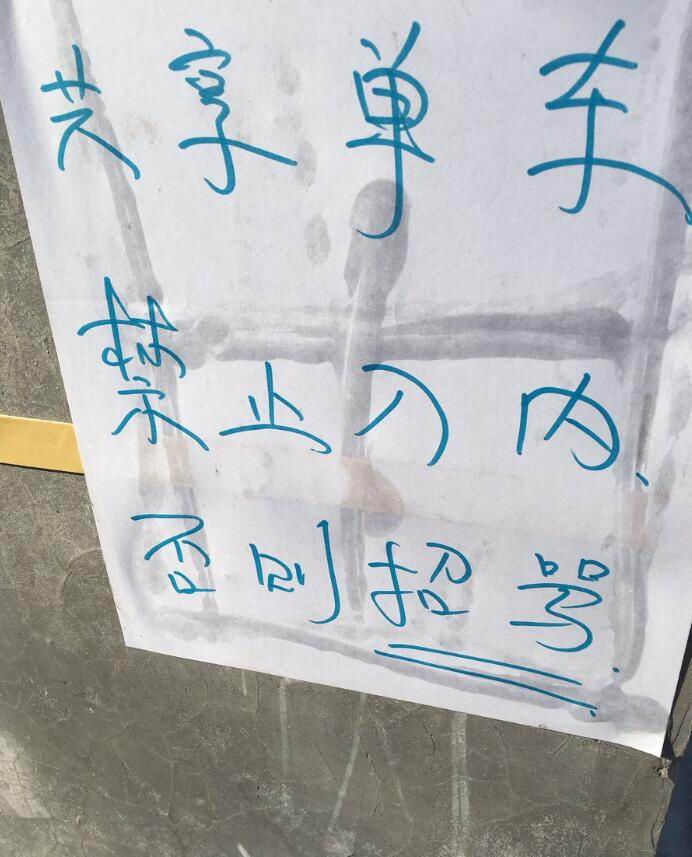 共享单车
禁止入内、
否则招骂.